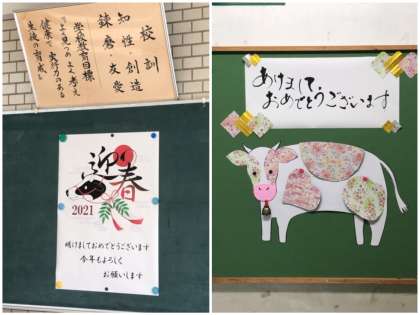 校訓
知性・創造
錬磨・友愛
学校教育目標
自ら見つめよく考え
健康で実行力のある
生徒の育成
迎春
2021
明けましておめでとうございます
今年もよろしく
お願いします
あけまして
おめでとうございます